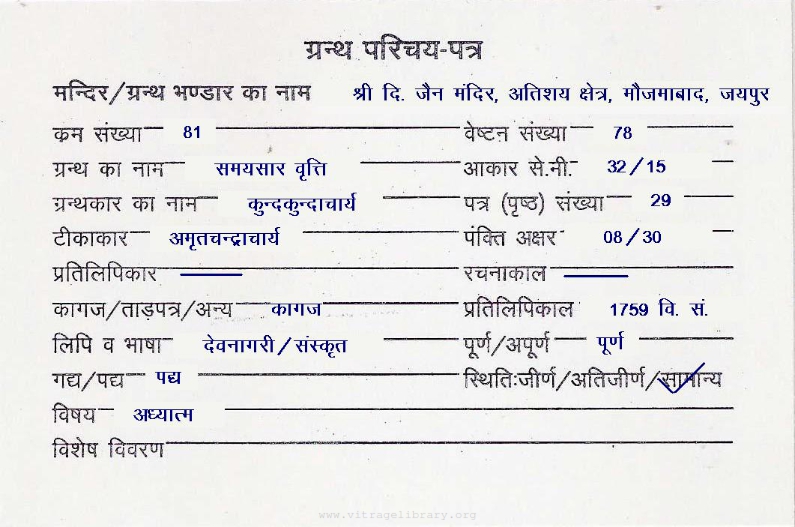 ग्रन्थ परिचय-पत्र
मन्दिर/ग्रन्थ भण्डार का नाम श्री दि. जैन मंदिर, अतिशय क्षेत्र, मौजमाबाद, जयपुर
कम संख्या 81 वेष्टन संख्या 78
ग्रन्थ का नाम समयसार वृत्ति आकार से.मी. 32/15
ग्रन्थकार का नाम कुन्दकुन्दाचार्य पत्र (पृष्ठ) संख्या 29
टीकाकार अमृतचन्द्राचार्य पंक्ति अक्षर 08/30
प्रतिलिपिकार रचनाकाल
कागज/ताड़पत्र/अन्य कागज प्रतिलिपिकाल 1759 वि. सं.
लिपि व भाषा देवनागरी/संस्कृत पूर्ण/अपूर्ण पूर्ण
गद्य/पद्य पद्य स्थितिःजीर्ण/अतिजीर्ण/सामान्य
विषय अध्यात्म
विशेष विवरण
www.vitragelibrary.org